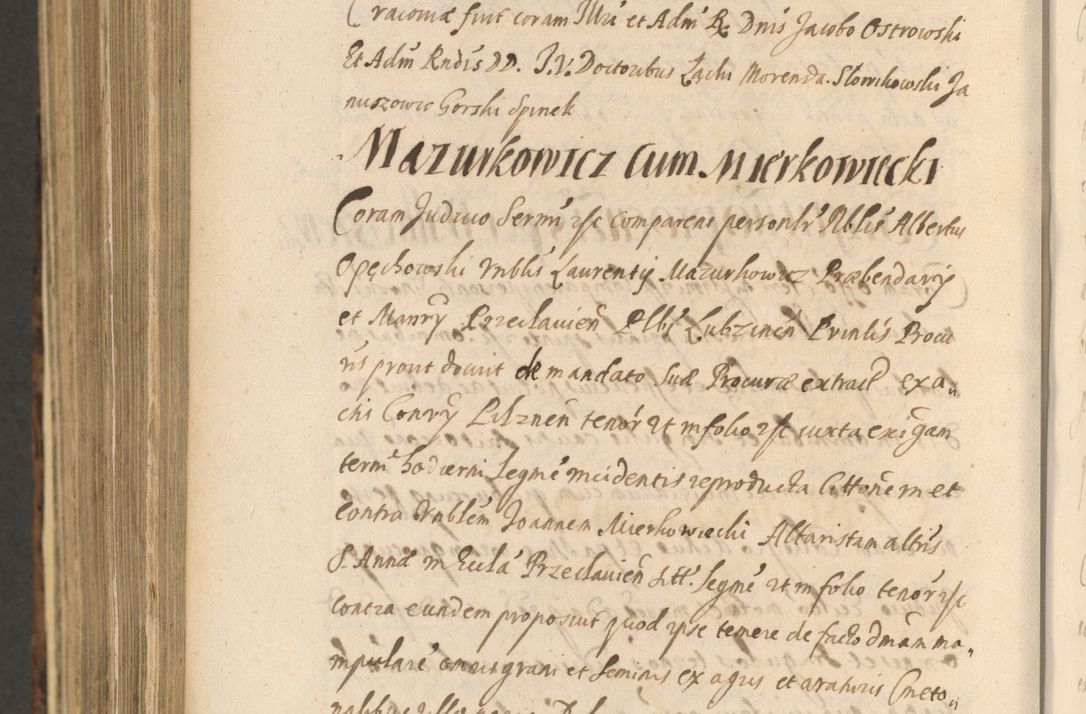 Cracoviæ fuit coram Illri et Adm R. Dnis Jacobo Ostrowski
Et Adm Rndis DD. I.V. Doctoribus Lachi Morenda. Słowikowski Ja
nuszowic Gorski Spinek
Mazurkowicz Cum Mierkowiecki
Coram Judicio Sermi rsc comparens personlr Nblis Albertus
Opęchowski Vnblis Laurentij Mazurkowicz Præbendarij
et Manrij Przecłavien Pllbi Lubzinen Prinlis Procu
ris prout docuit de mandato suæ Procuræ extract ex a„
chi Consry Pilznen tenor et in folio rsc iuxta exigam
term hodierni legme incidentis reproducta Cittone in et
contra Vnblem Joannem Mierkowiecki Altaristam altris
S. Annæ in Eccla Przecłavien Citt. legme et in folio tenor rsc
contra eundem proposuit quod ipse temere de facto dmam ma„
nipulare omnis grani et seminis ex agris et araturis Cmeto„